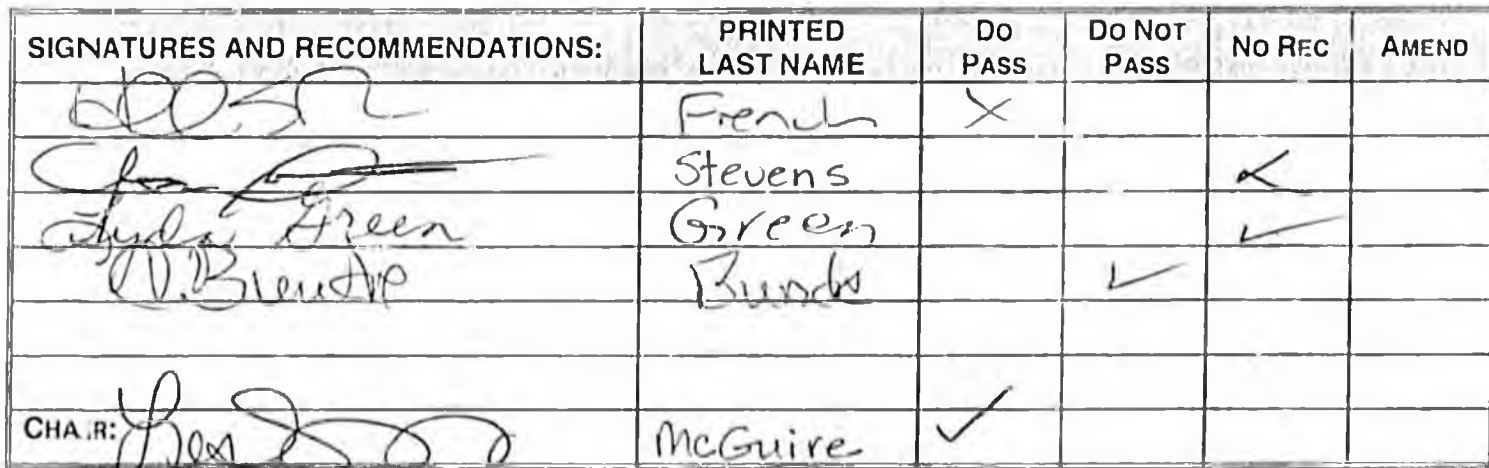 SIGNATURES AND RECOMMENDATIONS: PRINTED LAST NAME DO PASS DO NOT PASS NO REC AMEND
French X
Stevens X
Lyda Green Green ✓
Bunde ✓
CHAIR: McGuire ✓